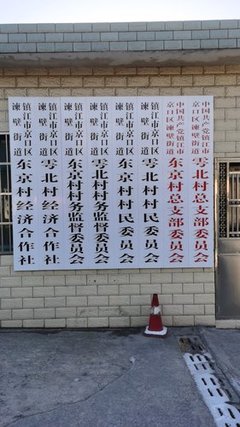 中国共产党镇江市
京口区谏壁街道
雩北村总支部委员会
中国共产党镇江市
京口区谏壁街道
东京村总支部委员会
镇江市京口区
谏壁街道
雩北村村民委员会
镇江市京口区
谏壁街道
东京村村民委员会
镇江市京口区
谏壁街道
雩北村村务监督委员会
镇江市京口区
谏壁街道
东京村村务监督委员会
镇江市京口区
谏壁街道
雩北村经济合作社
镇江市京口区
谏壁街道
东京村经济合作社